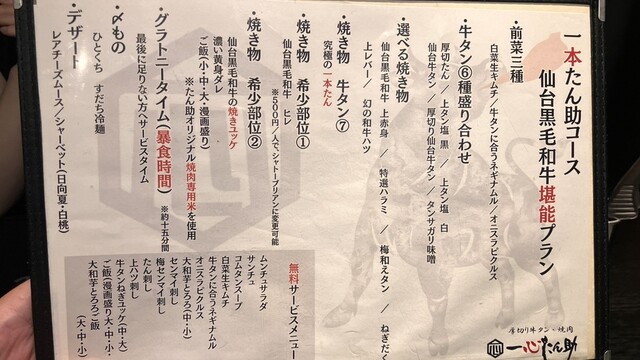 一本たん助コース
仙台黒毛和牛堪能プラン
・前菜三種
白菜生キムチ／牛タンに合うネギナムル／オニスラピクルス
・牛タン⑥種盛り合わせ
厚切たん／上タン塩 黒／上タン塩 白
仙台牛タン／厚切り仙台牛タン／タンサガリ味噌
・選べる焼き物
仙台黒毛和牛 上赤身／特選ハラミ／梅和えタン／ねぎだく
上レバー／幻の和牛ハツ
・焼き物 牛タン⑦
究極の一本たん
・焼き物 希少部位①
仙台黒毛和牛 ヒレ
※500円／人で、シャトーブリアンに変更可能
・焼き物 希少部位②
仙台黒毛和牛の焼きユッケ
濃い黄身ダレ
ご飯(小・中・大・漫画盛り)
※たん助オリジナル焼肉専用米を使用
・グラトニータイム(暴食時間)
※約十五分間
最後に足りない方へサービスタイム
・〆もの
ひとくち すだち冷麺
・デザート
レアチーズムース／シャーベット(日向夏・白桃)
無料サービスメニュー
ムンチュサラダ
サンチュ
コムタンスープ
白菜生キムチ
牛タンに合うネギナムル
オニスラピクルス
大和芋とろろ(中・小)
センマイ刺し
梅センマイ刺し
たん刺し
上ハツ刺し
牛タンねぎユッケ(中・大)
ご飯(漫画盛り・大・中・小)
大和芋とろろご飯
(大・中・小)
厚切り牛タン・焼肉
一心たん助